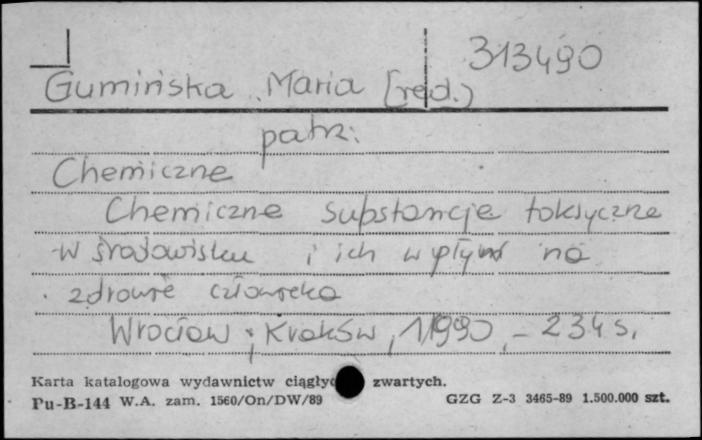 313490
Gumińska Maria (red.)
patrz:
Chemiczne
Chemiczne substancje toksyczne
w środowisku i ich wpływ na
zdrowie człowieka
Wrocław ; Kraków, 1990, - 234 s.
Karta katalogowa wydawnictw zwartych.
Pu-B-144 W.A. zam. 1560/On/DW/89 GZG Z-3 3465-89 1.500.000 szt.